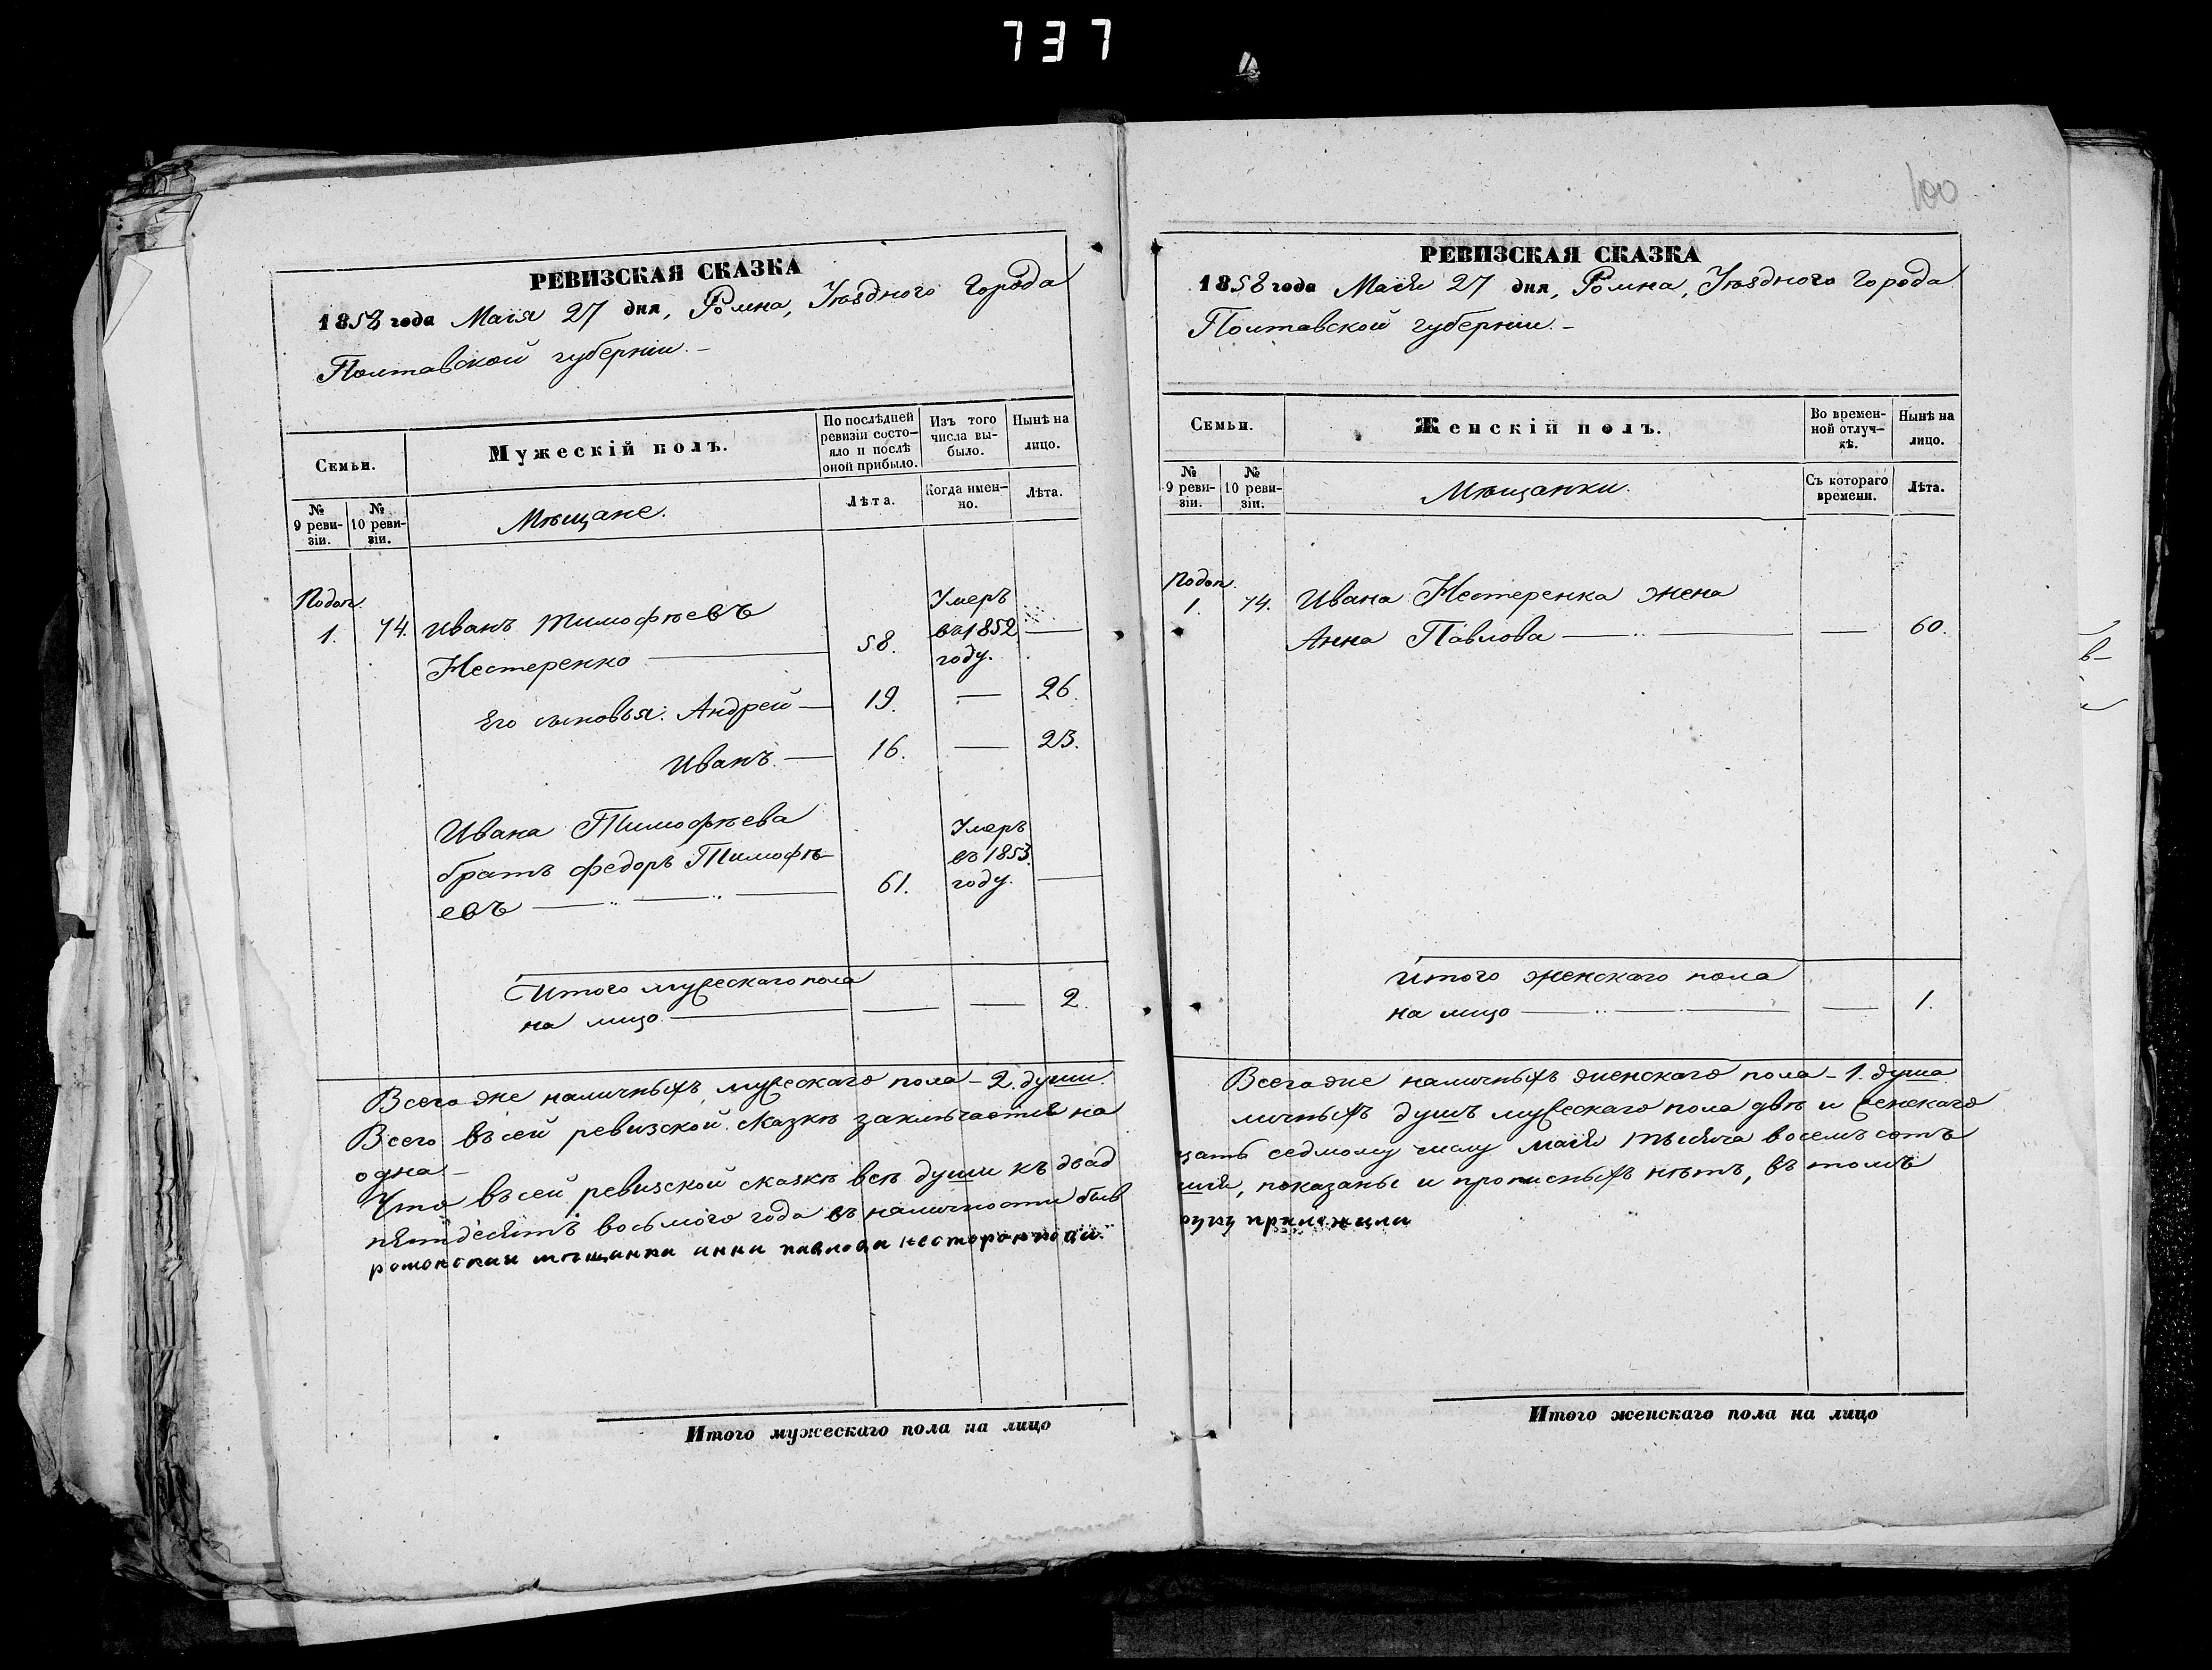 737
РЕВИЗСКАЯ СКАЗКА
1858 года Маія 27 дня, Ромна, Уѣзднаго города
Полтавской губерніи. –
Семьи.
Мужескій полъ.
По послѣдней ревизіи состо-
яло и послѣ
оной прибыло.
Изъ того
числа вы-
было.
Нынѣ на
лицо.
№
9 реви-
зіи.
№
10 реви-
зіи.
Мѣщане.
Лѣта.
Когда имен-
но.
Лѣта.
Подоп.
1. 74. Иванъ Тимофѣевъ
Нестеренко — 58. Умеръ
въ 1852
году. —
Его сыновья: Андрей — 19. — 26.
Иванъ. — 16. — 23.
Ивана Тимофѣева
братъ Федоръ Тимофѣ-
евъ — 61. Умеръ
въ 1853
году. —
Итого мужескаго пола
на лицо — — — 2.
Всего же наличныхъ мужескаго пола – 2. души.
Всего въ сей ревизской сказкѣ заключается на
одна –
Что въ сей ревизской сказкѣ всѣ души къ двад
пятидесятъ восьмого года въ наличности быв
роменская мѣщанка анна павлова нестеренкова
Итого мужескаго пола на лицо
100
РЕВИЗСКАЯ СКАЗКА
1858 года Маія 27 дня, Ромна, Уѣзднаго города
Полтавской губерніи. –
Семьи.
Женскій полъ.
Во времен-
ной отлуч-
кѣ.
Нынѣ на
лицо.
№
9 реви-
зіи.
№
10 реви-
зіи.
Мѣщанки.
Съ котораго
времени.
Лѣта.
Подоп.
1. 74. Ивана Нестеренка жена
Анна Павлова — — 60.
Итого женскаго пола
на лицо — — 1.
Всего же наличныхъ женскаго пола – 1. душа
личныхъ душъ мужескаго пола двѣ и женскаго
цать седмому числу маія тысяча восемъ сотъ
шія, показаны и прописныхъ нѣтъ, въ томъ
руку приложила
Итого женскаго пола на лицо